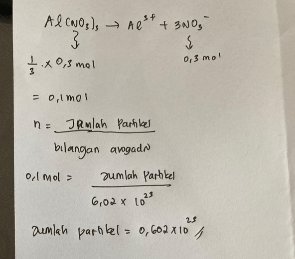 Al(NO₃)₃ → Al³⁺ + 3NO₃⁻
1/3 × 0,3 mol 0,3 mol
= 0,1 mol
n = Jumlah Partikel / bilangan avogadro
0,1 mol = Jumlah Partikel / 6,02 × 10²³
Jumlah partikel = 0,602 × 10²³ //